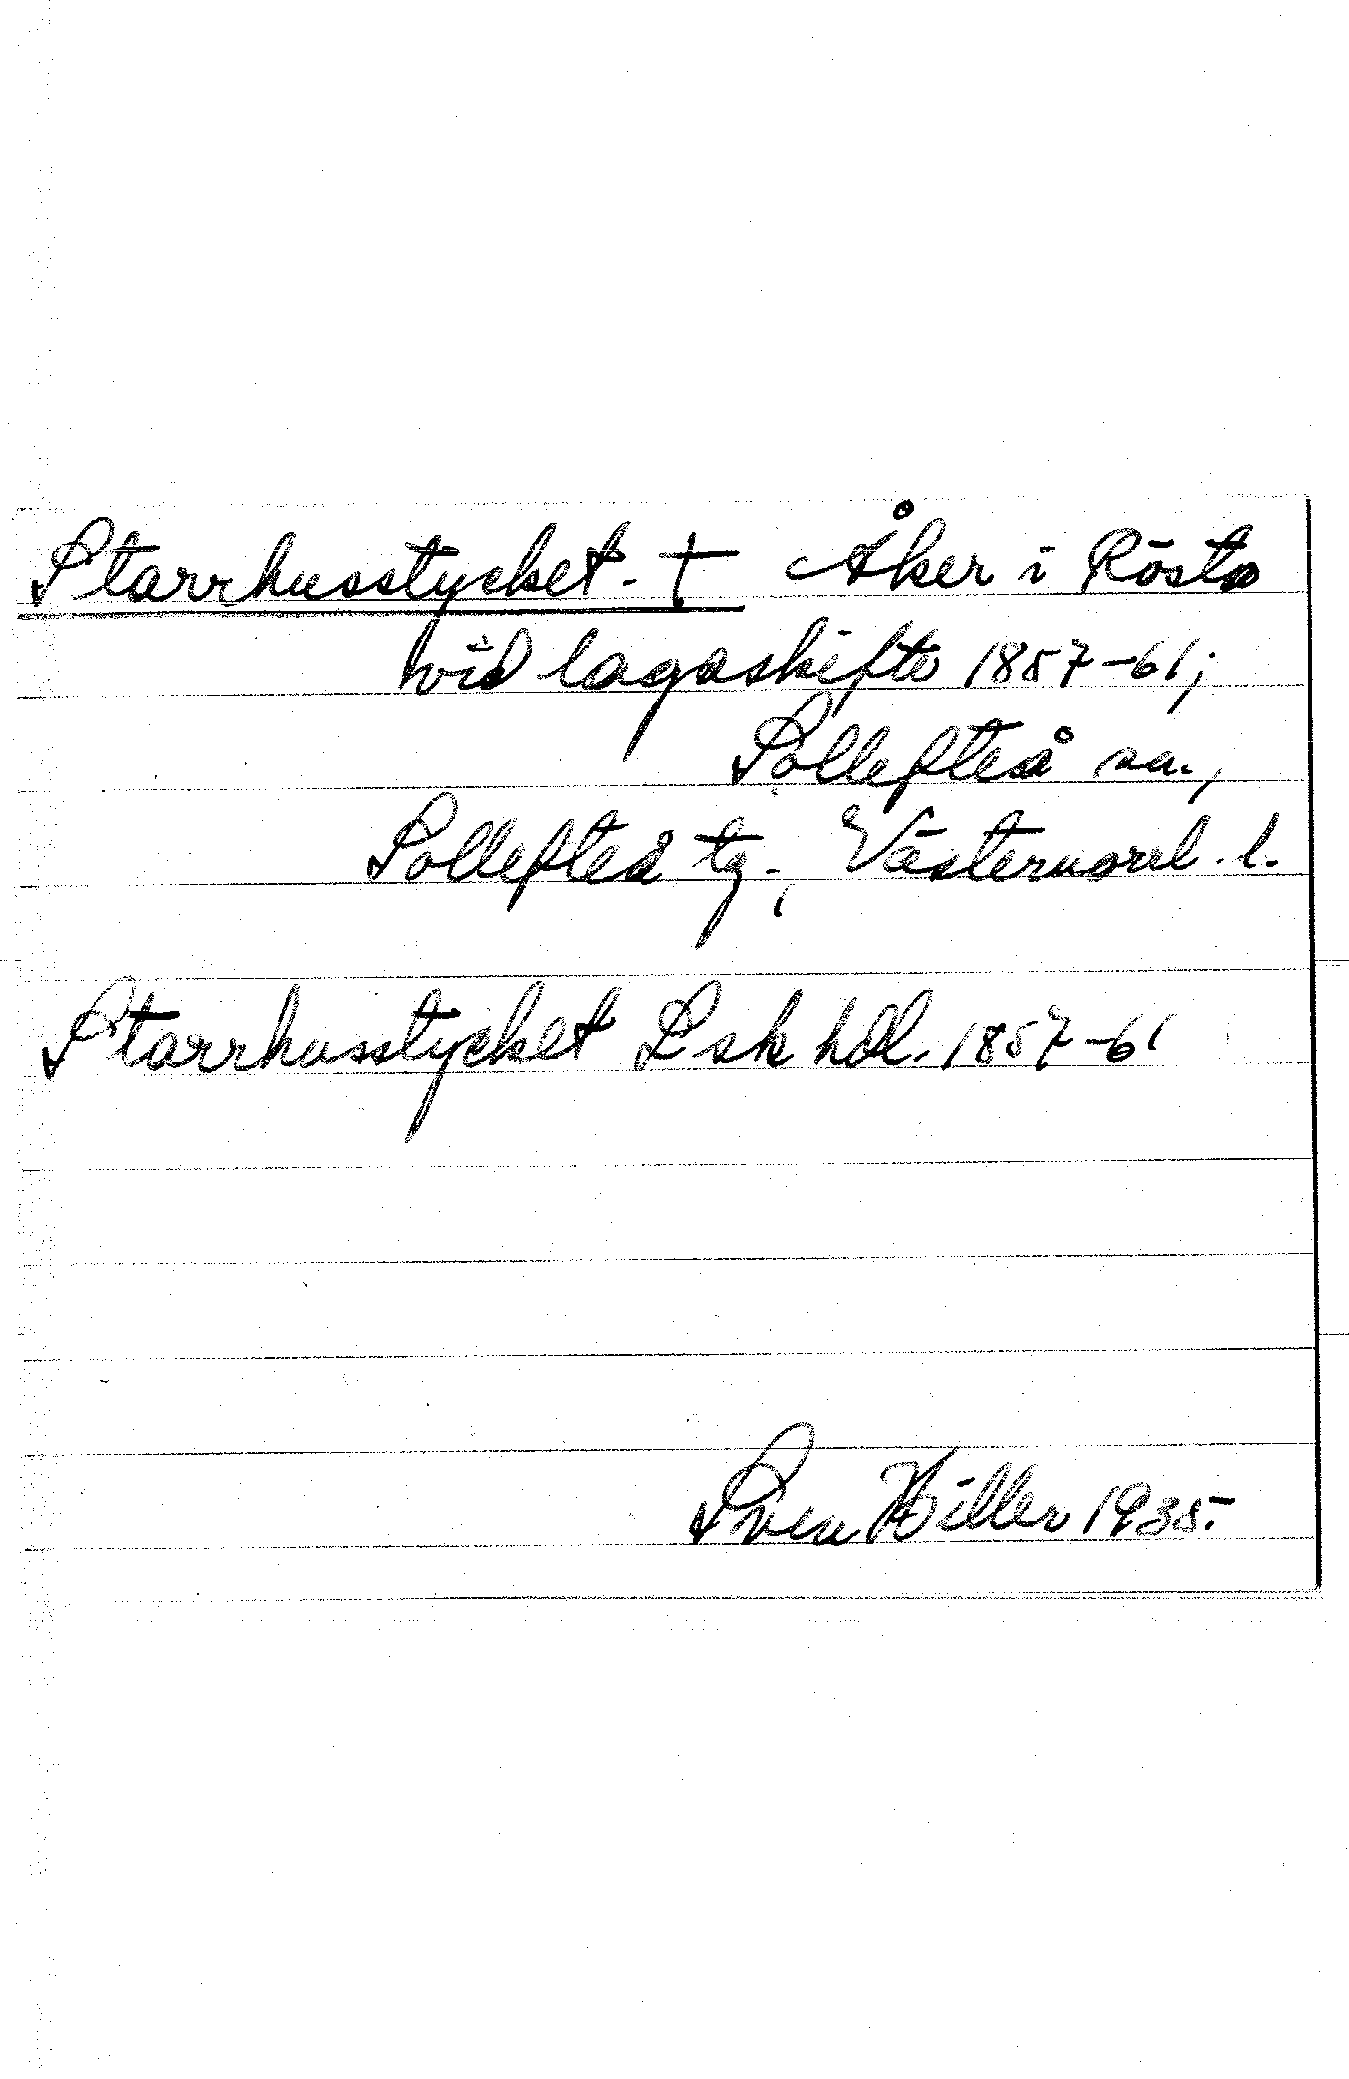 Starrhusstycket. † Åker i Rösta
vid lagaskifte 1857-61;
Sollefteå sn.,
Sollefteå tg., Västernorrl. l.
Starrhusstycket Lsk hdl. 1857-61
Sven Hiller 1935.